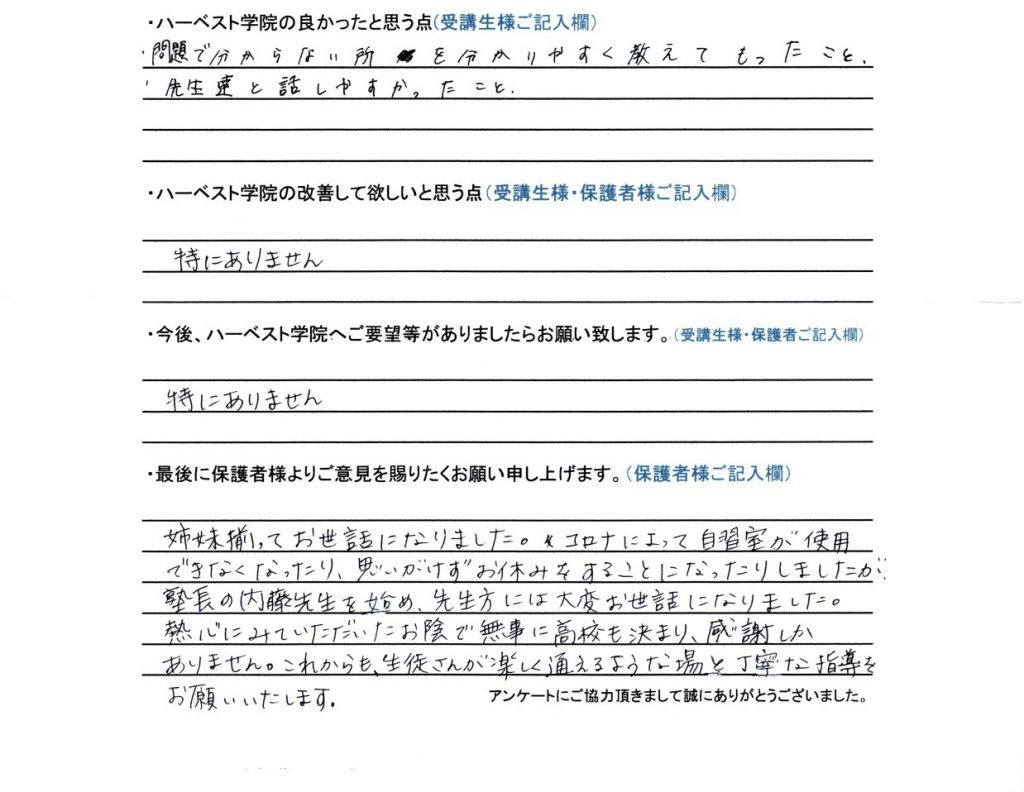 ・ハーベスト学院の良かったと思う点(受講生様ご記入欄)
・問題で分からない所を分かりやすく教えてもったこと.
・先生達と話しやすかったこと.
・ハーベスト学院の改善して欲しいと思う点(受講生様・保護者様ご記入欄)
特にありません
・今後、ハーベスト学院へご要望等がありましたらお願い致します。(受講生様・保護者ご記入欄)
特にありません
・最後に保護者様よりご意見を賜りたくお願い申し上げます。(保護者様ご記入欄)
姉妹揃ってお世話になりました。コロナによって自習室が使用
できなくなったり、思いがけずお休みをすることになったりしましたが、
塾長の内藤先生を始め、先生方には大変お世話になりました。
熱心にみていただいたお陰で無事に高校も決まり、感謝しか
ありません。これからも、生徒さんが楽しく通えるような場と丁寧な指導を
お願いいたします。
アンケートにご協力頂きまして誠にありがとうございました。